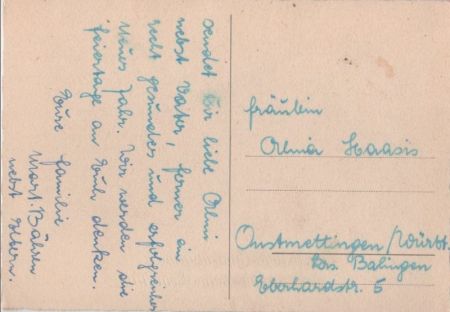 sendet Dir liebe Almi
nebst Vater, ferner ein
recht gesundes und erfolgreiches
Neues Jahr. Wir werden die
feiertage an Euch denken.
Eure familie
Mart. Bähren
nebst Eltern.
fräulein
Alma Haasis
Onstmettingen/Württ.
krs. Balingen
Eberhardstr. 5